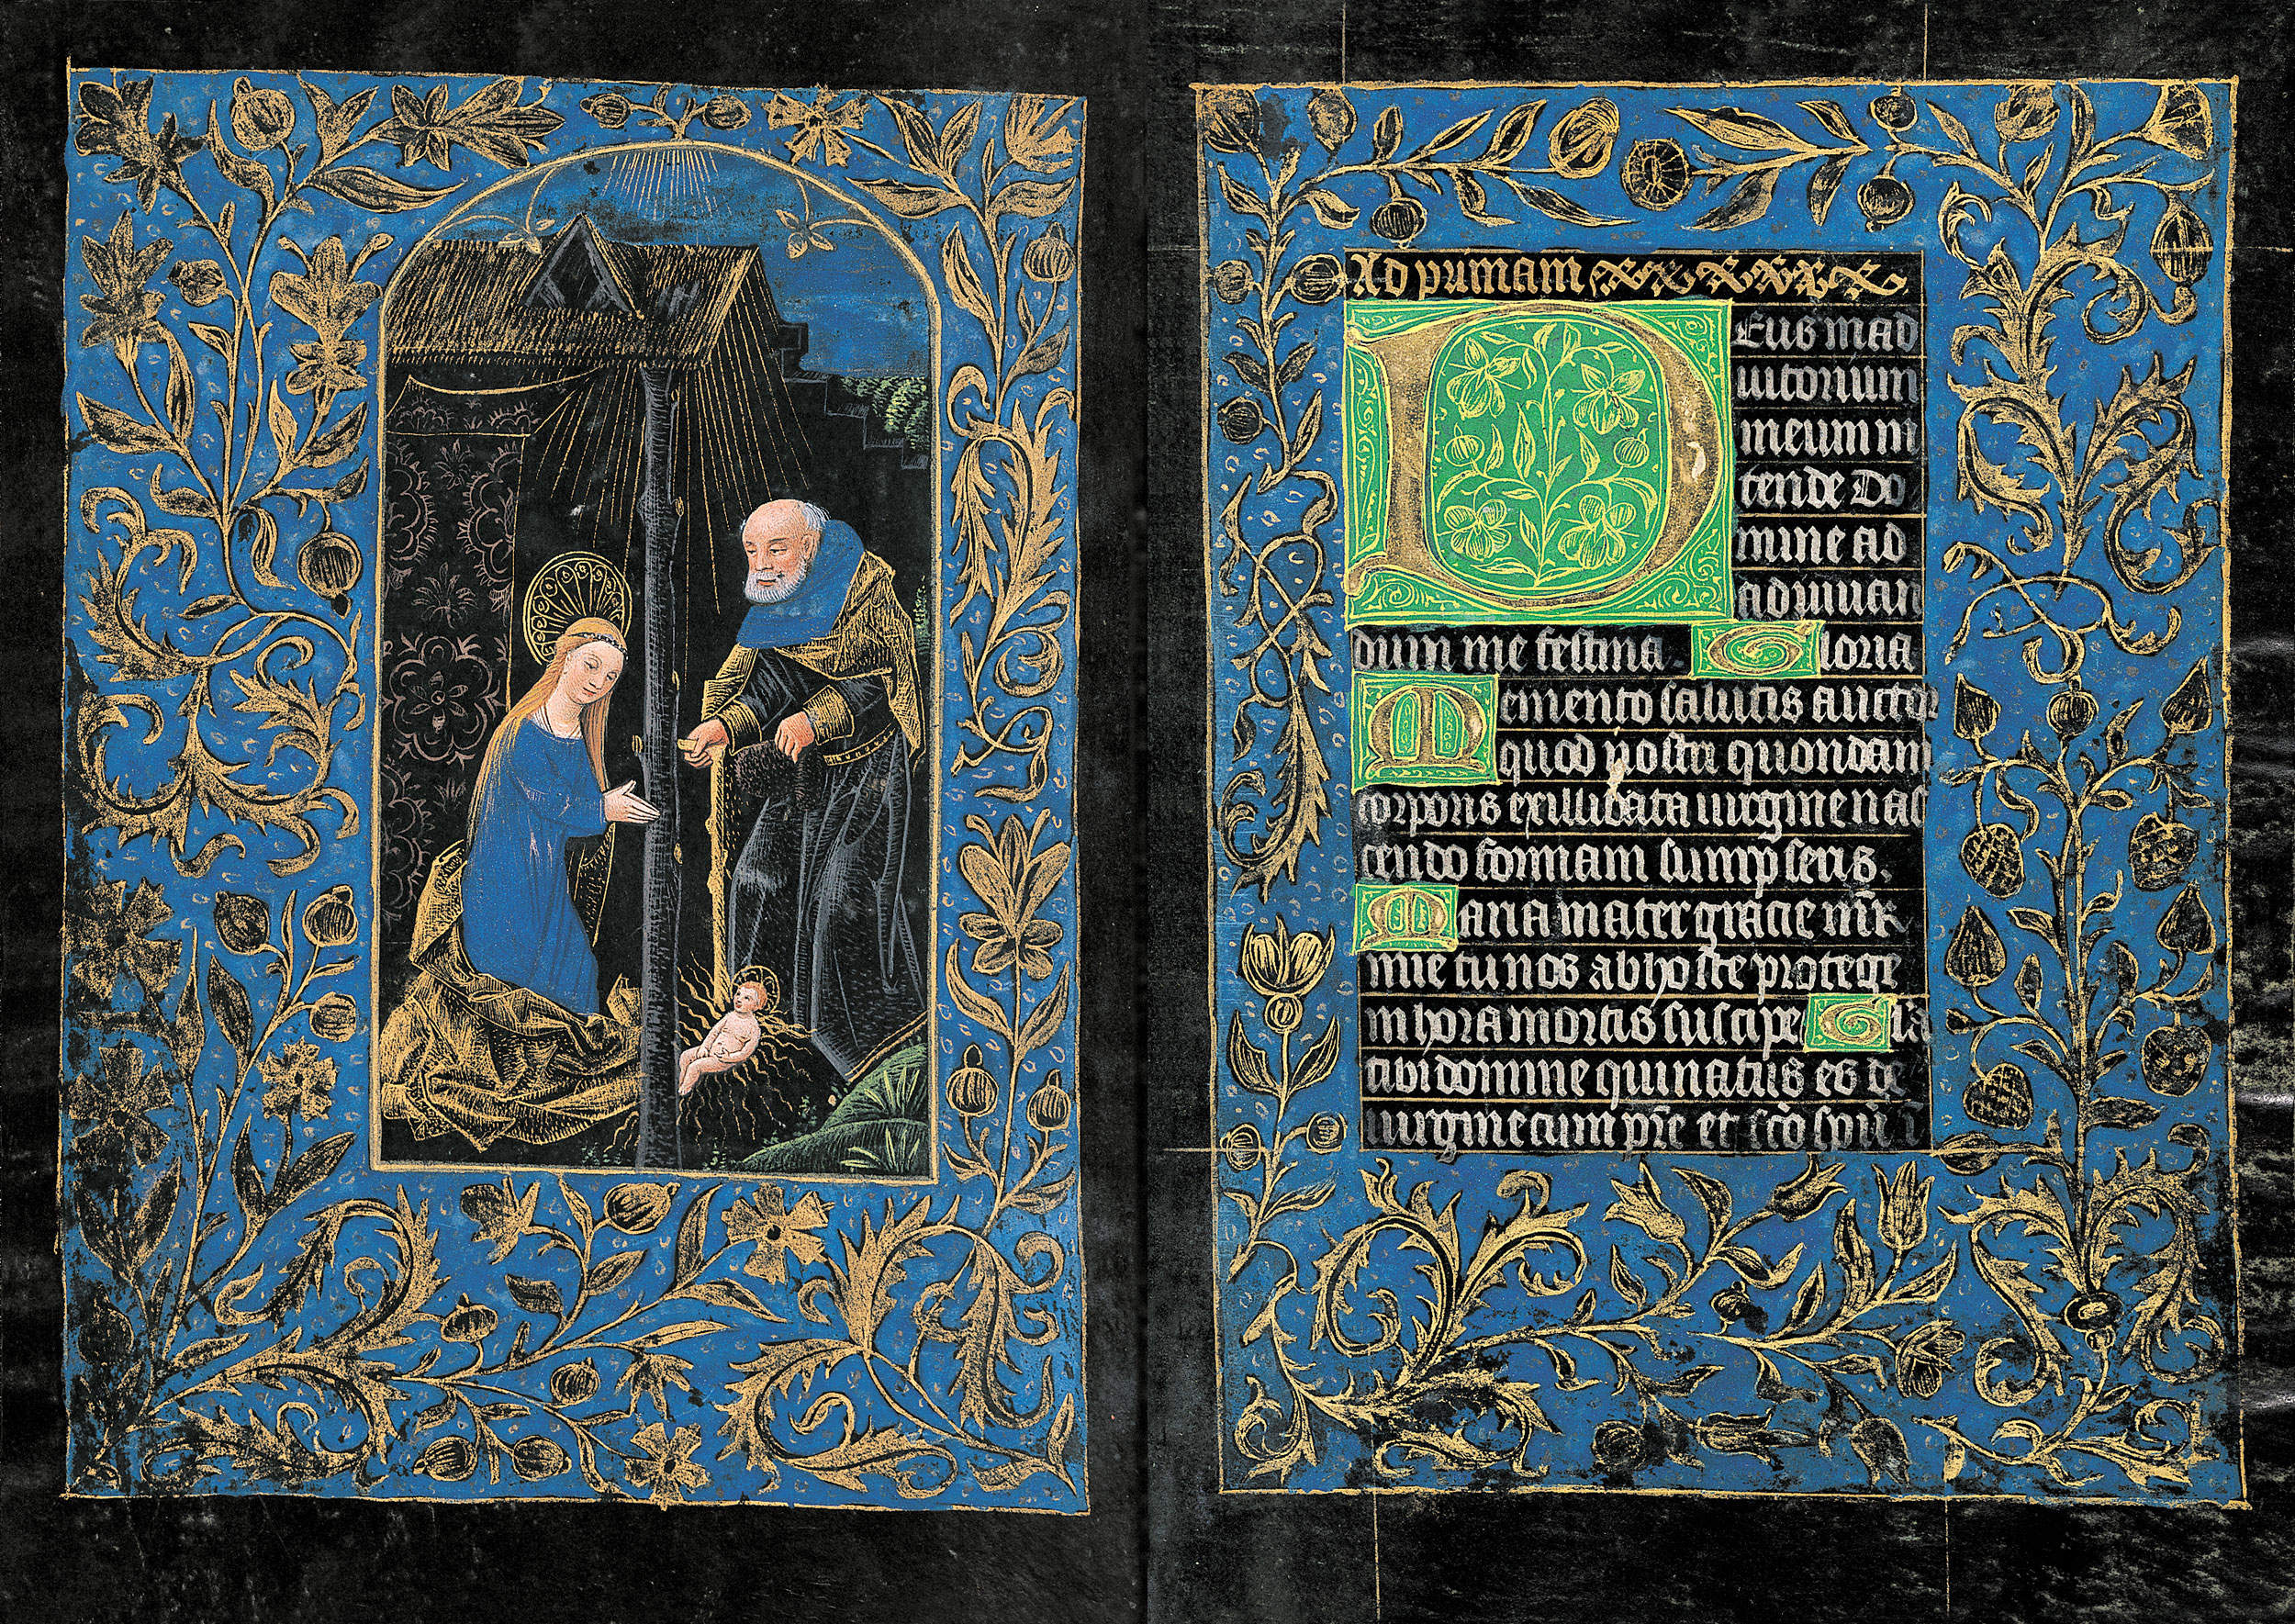 Ad primam
Deus in ad
iutorium
meum in
tende Do
mine ad
adiuuan
dum me festina. Gloria
Memento salutis auctor
quod nostri quondam
corporis ex illibata uirgine nas
cendo formam sumpseris.
Maria mater gracie mr̄e
mie tu nos ab hoste protege
in hora mortis suscipe Gl'a
tibi domine qui natus es de
uirgine cum pr̄e et sc̄o spū ī